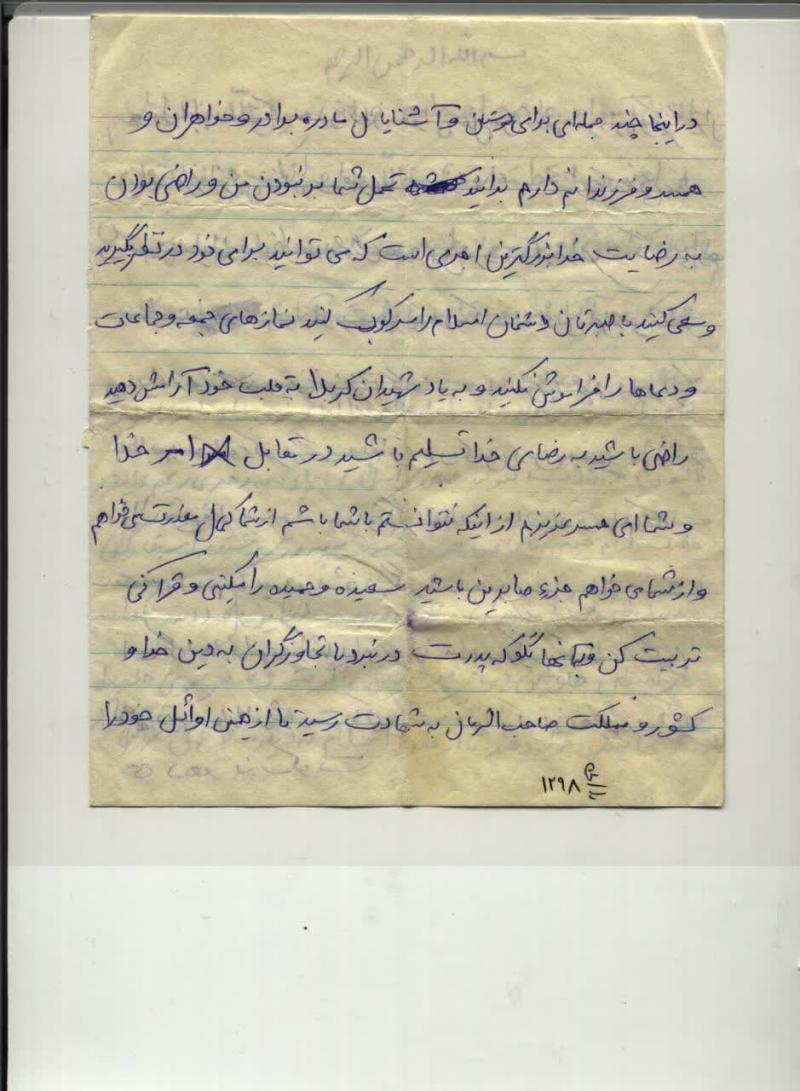 در اینجا چند جمله‌ای برای دوستان و آشنایان مادر و برادر و خواهران و
همسر و فرزندانم دارم بدانید تحمل شما بر نبودن من و راضی بودن
به رضایت خدا بزرگترین اجری است که می توانید برای خود در نظر بگیرید
و سعی کنید با صبرتان دشمنان اسلام را سرکوب کنید نمازهای جمعه و جماعات
و دعاها را فراموش نکنید و به یاد شهیدان کربلا به قلب خود آرامش دهید
راضی باشید به رضای خدا تسلیم باشید در مقابل امر خدا
و شما ای همسر عزیزم از اینکه نتوانستم با شما باشم از شما کمال معذرت می خواهم
و از شما می خواهم جزء صابرین باشید سعیده و حمیده را مکتبی و قرآنی
تربیت کن و به آنها بگو که پدرت در نبرد با تجاوزگران به دین خدا و
کشور و مملکت صاحب الزمان به شهادت رسید تا از همین اوائل خود را
۱۲۹۸